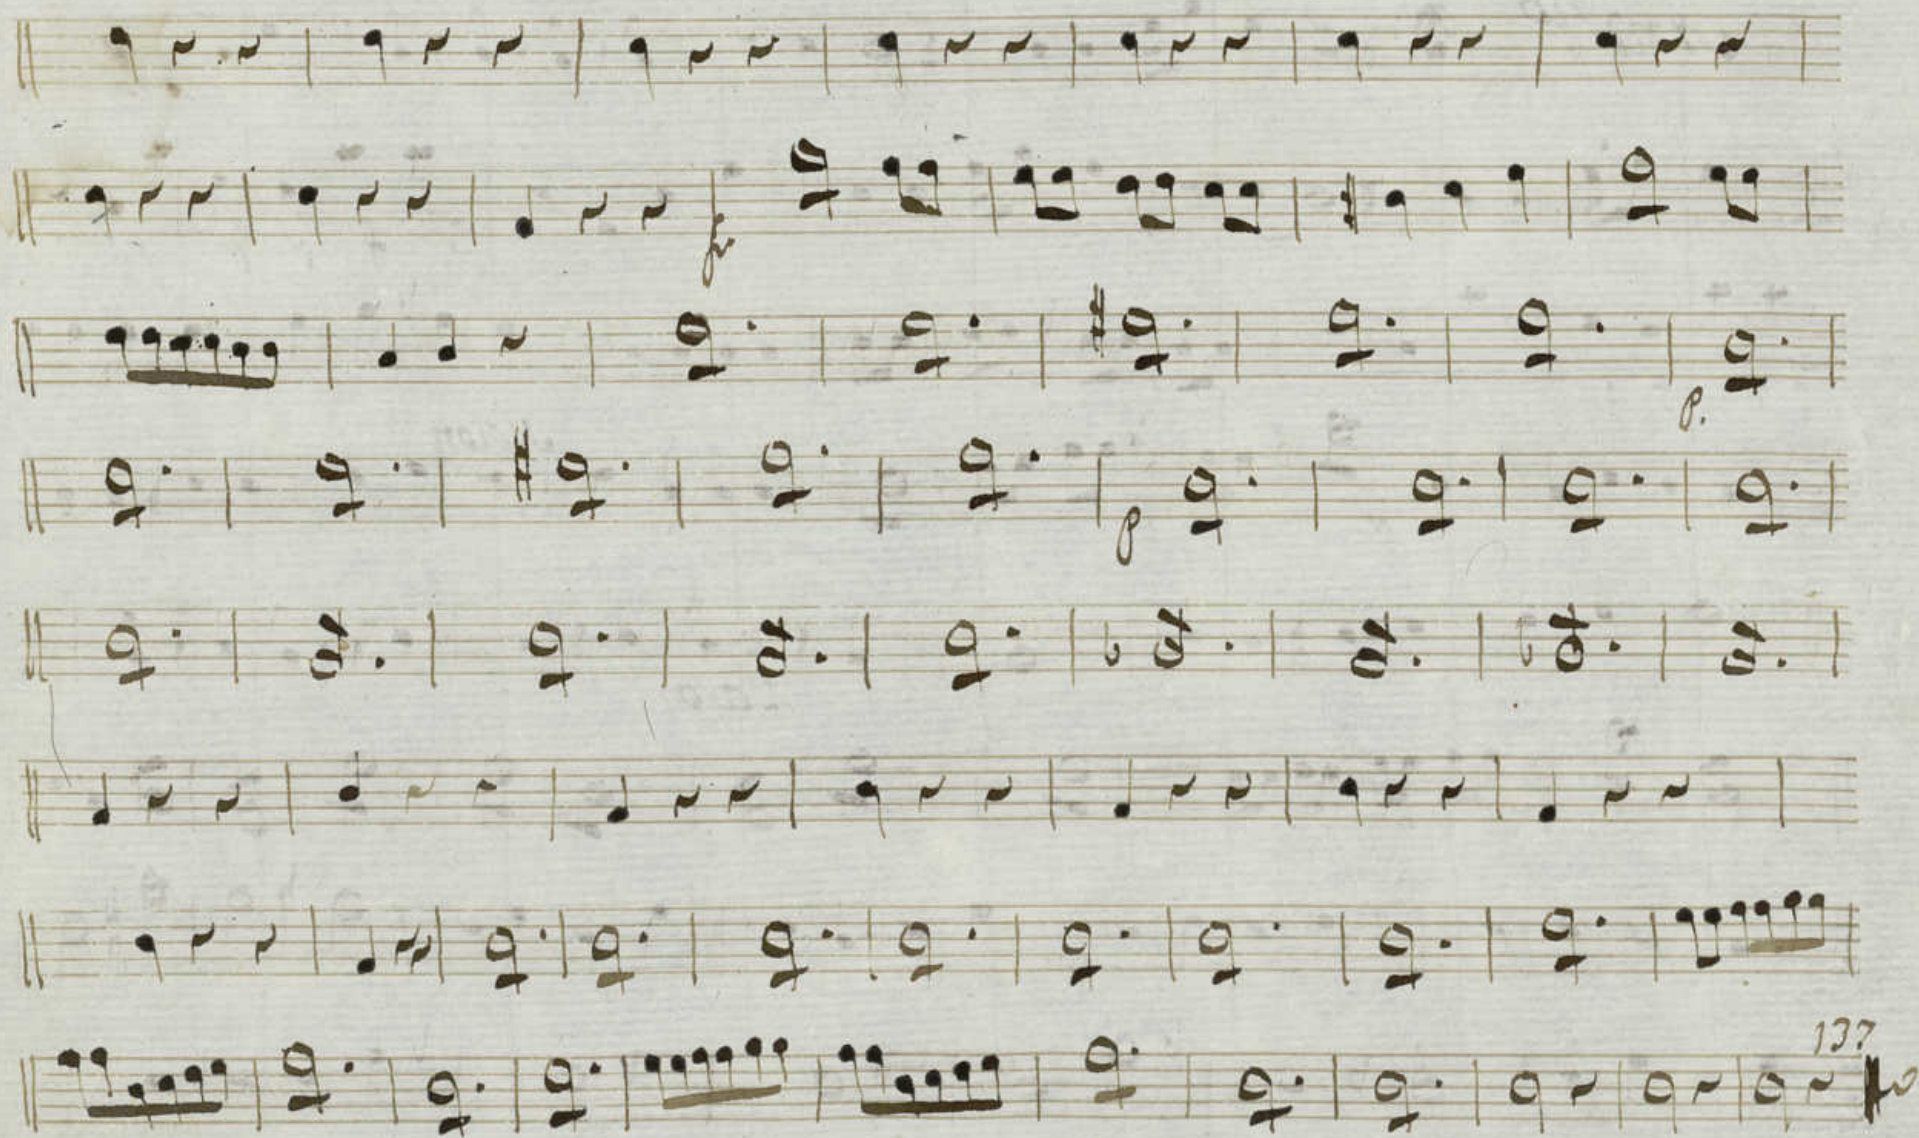 f
p.
p
137